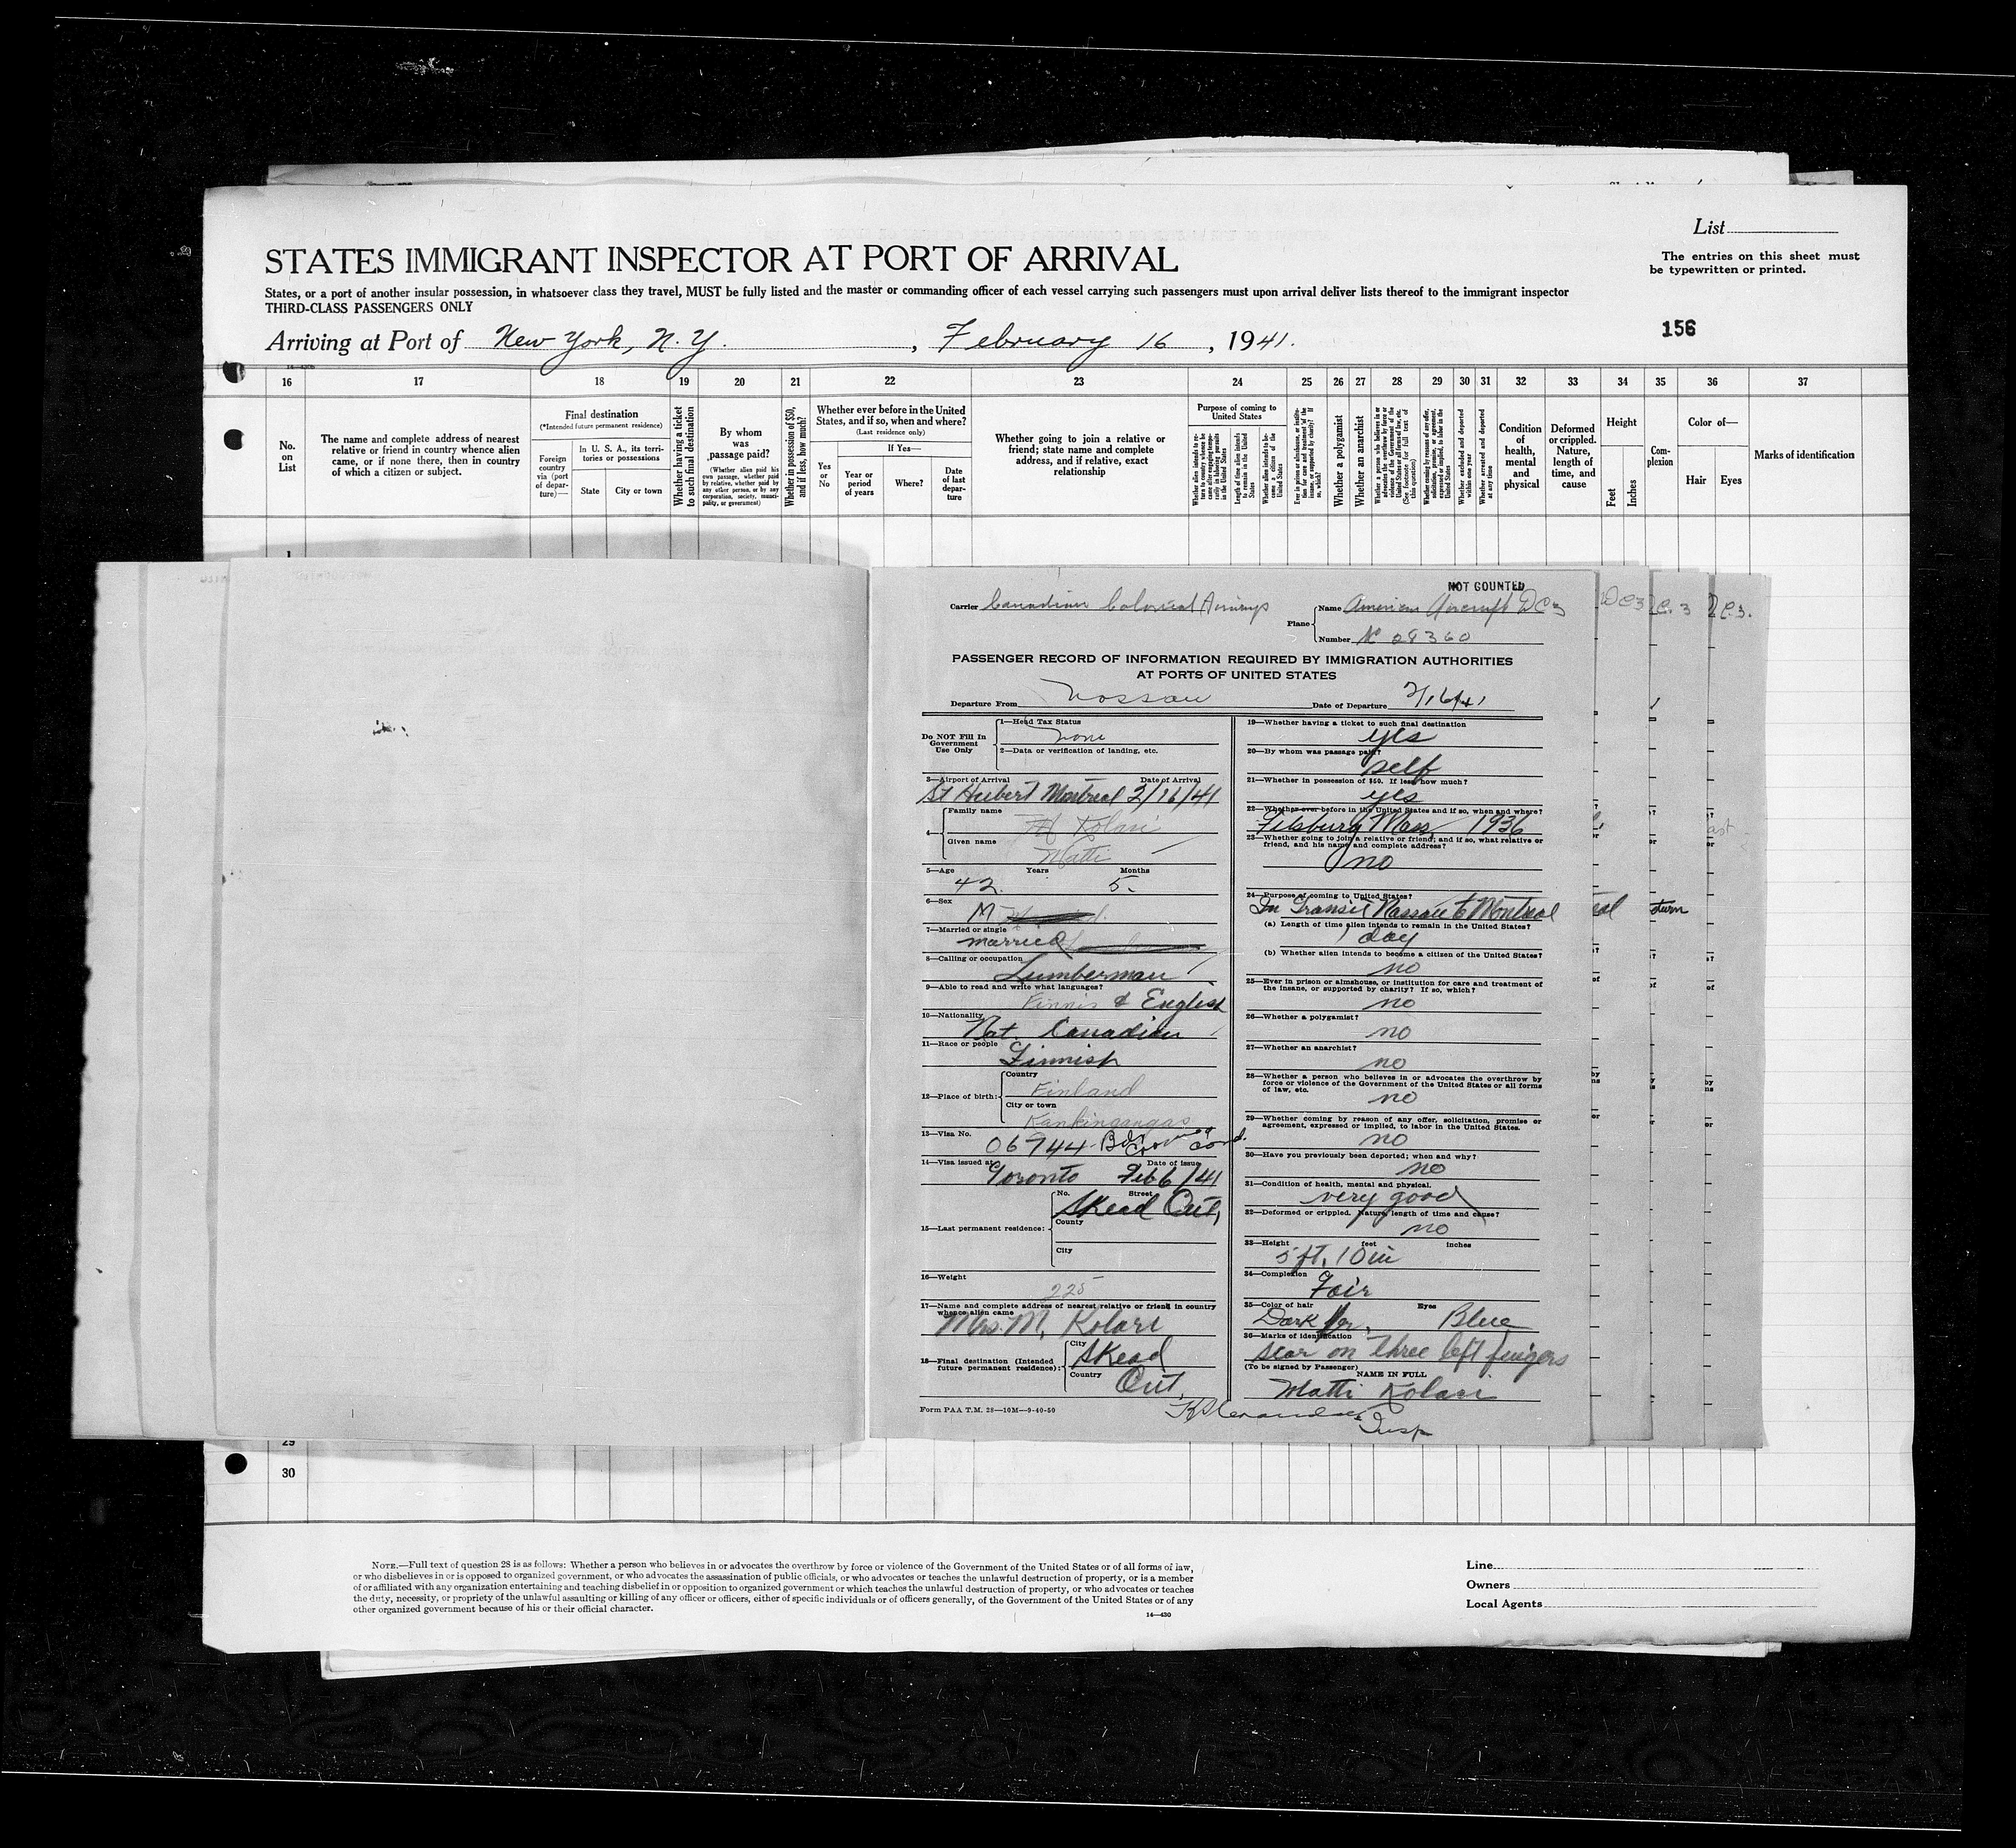 List
STATES IMMIGRANT INSPECTOR AT PORT OF ARRIVAL
The entries on this sheet must
be typewritten or printed.
States, or a port of another insular possession, in whatsoever class they travel, MUST be fully listed and the master or commanding officer of each vessel carrying such passengers must upon arrival deliver lists thereof to the immigrant inspector
THIRD-CLASS PASSENGERS ONLY
Arriving at Port of New York, N.Y. , February 16, 1941.
156
16 17 18 19 20 21 22 23 24 25 26 27 28 29 30 31 32 33 34 35 36 37
No. on List
The name and complete address of nearest relative or friend in country whence alien came, or if none there, then in country of which a citizen or subject.
Final destination
(*Intended future permanent residence)
Foreign country via (port of departure)—
In U. S. A., its territories or possessions
State
City or town
Whether having a ticket to such final destination
By whom was passage paid?
(Whether alien paid his own passage, whether paid by relative, whether paid by any other person, or by any corporation, society, municipality, or government)
Whether in possession of $50, and if less, how much?
Whether ever before in the United States, and if so, when and where?
(Last residence only)
Yes or No
If Yes—
Year or period of years
Where?
Date of last departure
Whether going to join a relative or friend; state name and complete address, and if relative, exact relationship
Purpose of coming to United States
Whether a polygamist
Whether an anarchist
Condition of health, mental and physical
Deformed or crippled. Nature, length of time, and cause
Height
Feet
Inches
Complexion
Color of—
Hair
Eyes
Marks of identification
NOT COUNTED
Carrier Canadian Colonial Airways
Plane
Name American Aircraft DC3
Number NC 28360
PASSENGER RECORD OF INFORMATION REQUIRED BY IMMIGRATION AUTHORITIES
AT PORTS OF UNITED STATES
Departure From Nassau Date of Departure 2/16/41
Do NOT Fill In
Government
Use Only
1—Head Tax Status
none
2—Data or verification of landing, etc.
3—Airport of Arrival Date of Arrival
St Hubert Montreal 2/16/41
4—
Family name
Kolari
Given name
Matti
5—Age Years Months
42 5
6—Sex
M
7—Married or single
married
8—Calling or occupation
Lumberman
9—Able to read and write what languages?
Finnis & English
10—Nationality
Nat. Canadian
11—Race or people
Finnish
12—Place of birth:
Country
Finland
City or town
13—Visa No.
06944
14—Visa issued at Date of issue
Toronto Feb 6/41
15—Last permanent residence:
No. Street
Skead Ont,
County
City
16—Weight
225
17—Name and complete address of nearest relative or friend in country
whence alien came
Mrs. M. Kolari
18—Final destination (Intended
future permanent residence):
City
Skead
Country
Ont.
Form PAA T.M. 28—10M—9-40-50
19—Whether having a ticket to such final destination
yes
20—By whom was passage paid?
self
21—Whether in possession of $50. If less, how much?
yes
22—Whether ever before in the United States and if so, when and where?
Fitsburg Mass 1936
23—Whether going to join a relative or friend; and if so, what relative or
friend, and his name and complete address?
no
24—Purpose of coming to United States?
In Transit Nassau to Montreal
(a) Length of time alien intends to remain in the United States?
1 day
(b) Whether alien intends to become a citizen of the United States?
no
25—Ever in prison or almshouse, or institution for care and treatment of
the insane, or supported by charity? If so, which?
no
26—Whether a polygamist?
no
27—Whether an anarchist?
no
28—Whether a person who believes in or advocates the overthrow by
force or violence of the Government of the United States or all forms
of law, etc.
no
29—Whether coming by reason of any offer, solicitation, promise or
agreement, expressed or implied, to labor in the United States.
no
30—Have you previously been deported; when and why?
no
31—Condition of health, mental and physical.
very good
32—Deformed or crippled. Nature, length of time and cause?
no
33—Height feet inches
5 ft. 10 in
34—Complexion
Fair
35—Color of hair Eyes
Dark Br. Blue
36—Marks of identification
scar on three left fingers
(To be signed by Passenger)
NAME IN FULL
Matti Kolari
Insp
29
30
NOTE.—Full text of question 28 is as follows: Whether a person who believes in or advocates the overthrow by force or violence of the Government of the United States or of all forms of law,
or who disbelieves in or is opposed to organized government, or who advocates the assassination of public officials, or who advocates or teaches the unlawful destruction of property, or is a member
of or affiliated with any organization entertaining and teaching disbelief in or opposition to organized government or which teaches the unlawful destruction of property, or who advocates or teaches
the duty, necessity, or propriety of the unlawful assaulting or killing of any officer or officers, either of specific individuals or of officers generally, of the Government of the United States or of any
other organized government because of his or their official character.
14—430
Line
Owners
Local Agents